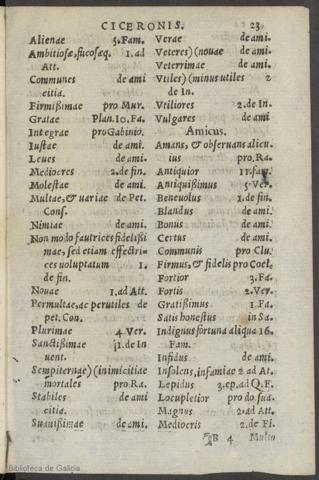 CICERONIS. 23
Alienae 5.Fam.
Ambitiosæ, fucosæq́. 1.ad
Att.
Communes de ami
citia.
Firmißimæ pro Mur.
Gratae Plan.10.Fa.
Integrae pro Gabinio.
Iustae de ami.
Leues de ami.
Mediocres 2.de fin.
Molestae de ami.
Multae, & uariae de Pet.
Cons.
Nimiae de ami.
Non modo fautrices fidelißi
mae, sed etiam effectri-
ces uoluptatum 1.
de fin.
Nouae 1.ad Att.
Permultae, ac perutiles de
pet. Con.
Plurimae 4.Ver.
Sanctißimæ 1.de In
uent.
Sempiternae)(inimicitiae
mortales pro Ra.
Stabiles de ami
citia.
Suauißimae de ami.
Verae de ami.
Veteres)(nouae de ami.
Veterrimae de ami.
Vtiles)(minus utiles 2
de In.
Vtiliores 2.de In.
Vulgares de ami
Amicus.
Amans, & obseruans alicu.
ius pro.Ra.
Antiquior 11.fam.
Antiquißimus 5.Ver.
Beneuolus 1.de fin.
Blandus de ami.
Bonus de ami.
Certus de ami.
Communis pro Clu.
Firmus, & fidelis pro Coel.
Fortior 3.Fa.
Fortis 2.Ver.
Gratißimus 1.Fa.
Satis honestus in Sa.
Indignus fortuna aliqua 16.
Fam.
Infidus de ami.
Insolens, infamiae 2.ad At.
Lepidus 3.ep.ad Q.F.
Locupletior pro do.sua.
Magnus 2.ad Att.
Mediocris 2.de Fi.
B 4 Multo
Biblioteca de Galicia